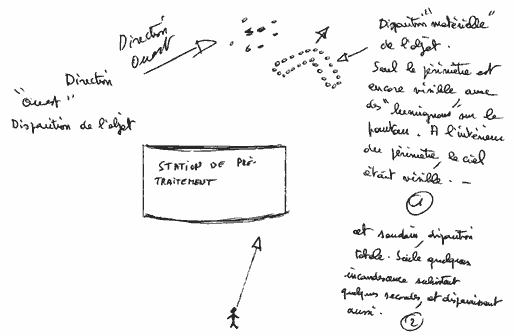 Direction
Ouest
Direction
"Ouest"
Disparition de l'objet
STATION DE PRÉ-
TRAITEMENT
Disparition "matérielle"
de l'objet.
Seul le périmètre est
encore visible avec
des "lumignons" sur le
pourtour. A l'intérieur
du périmètre, le ciel
était visible. -
1
et soudain, disparition
totale. Seule quelques
incandescence subsistait
quelques secondes, et disparaissent
aussi.
2